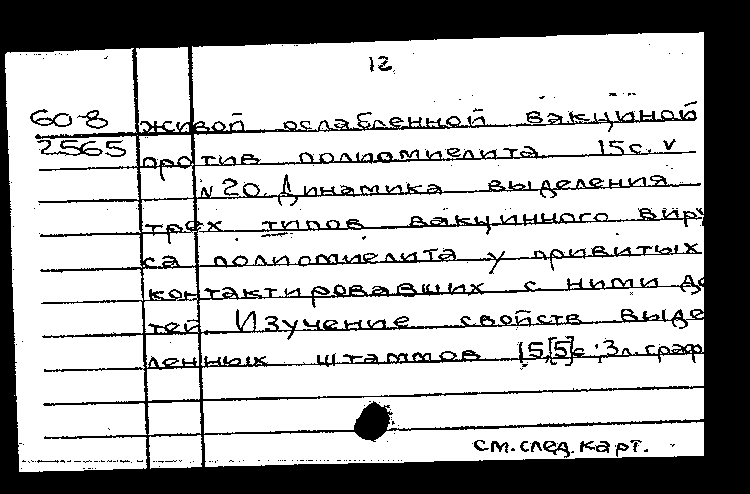 12
60-8 живой ослабленной вакциной
2565 против полиомиелита 15с. v
N 20. Динамика выделения
трех типов вакцинного виру
са полиомиелита у привитых
контактировавших с ними де
тей. Изучение свойств выде
ленных штаммов 15,[5]с; 3л. граф
см. след. карт.